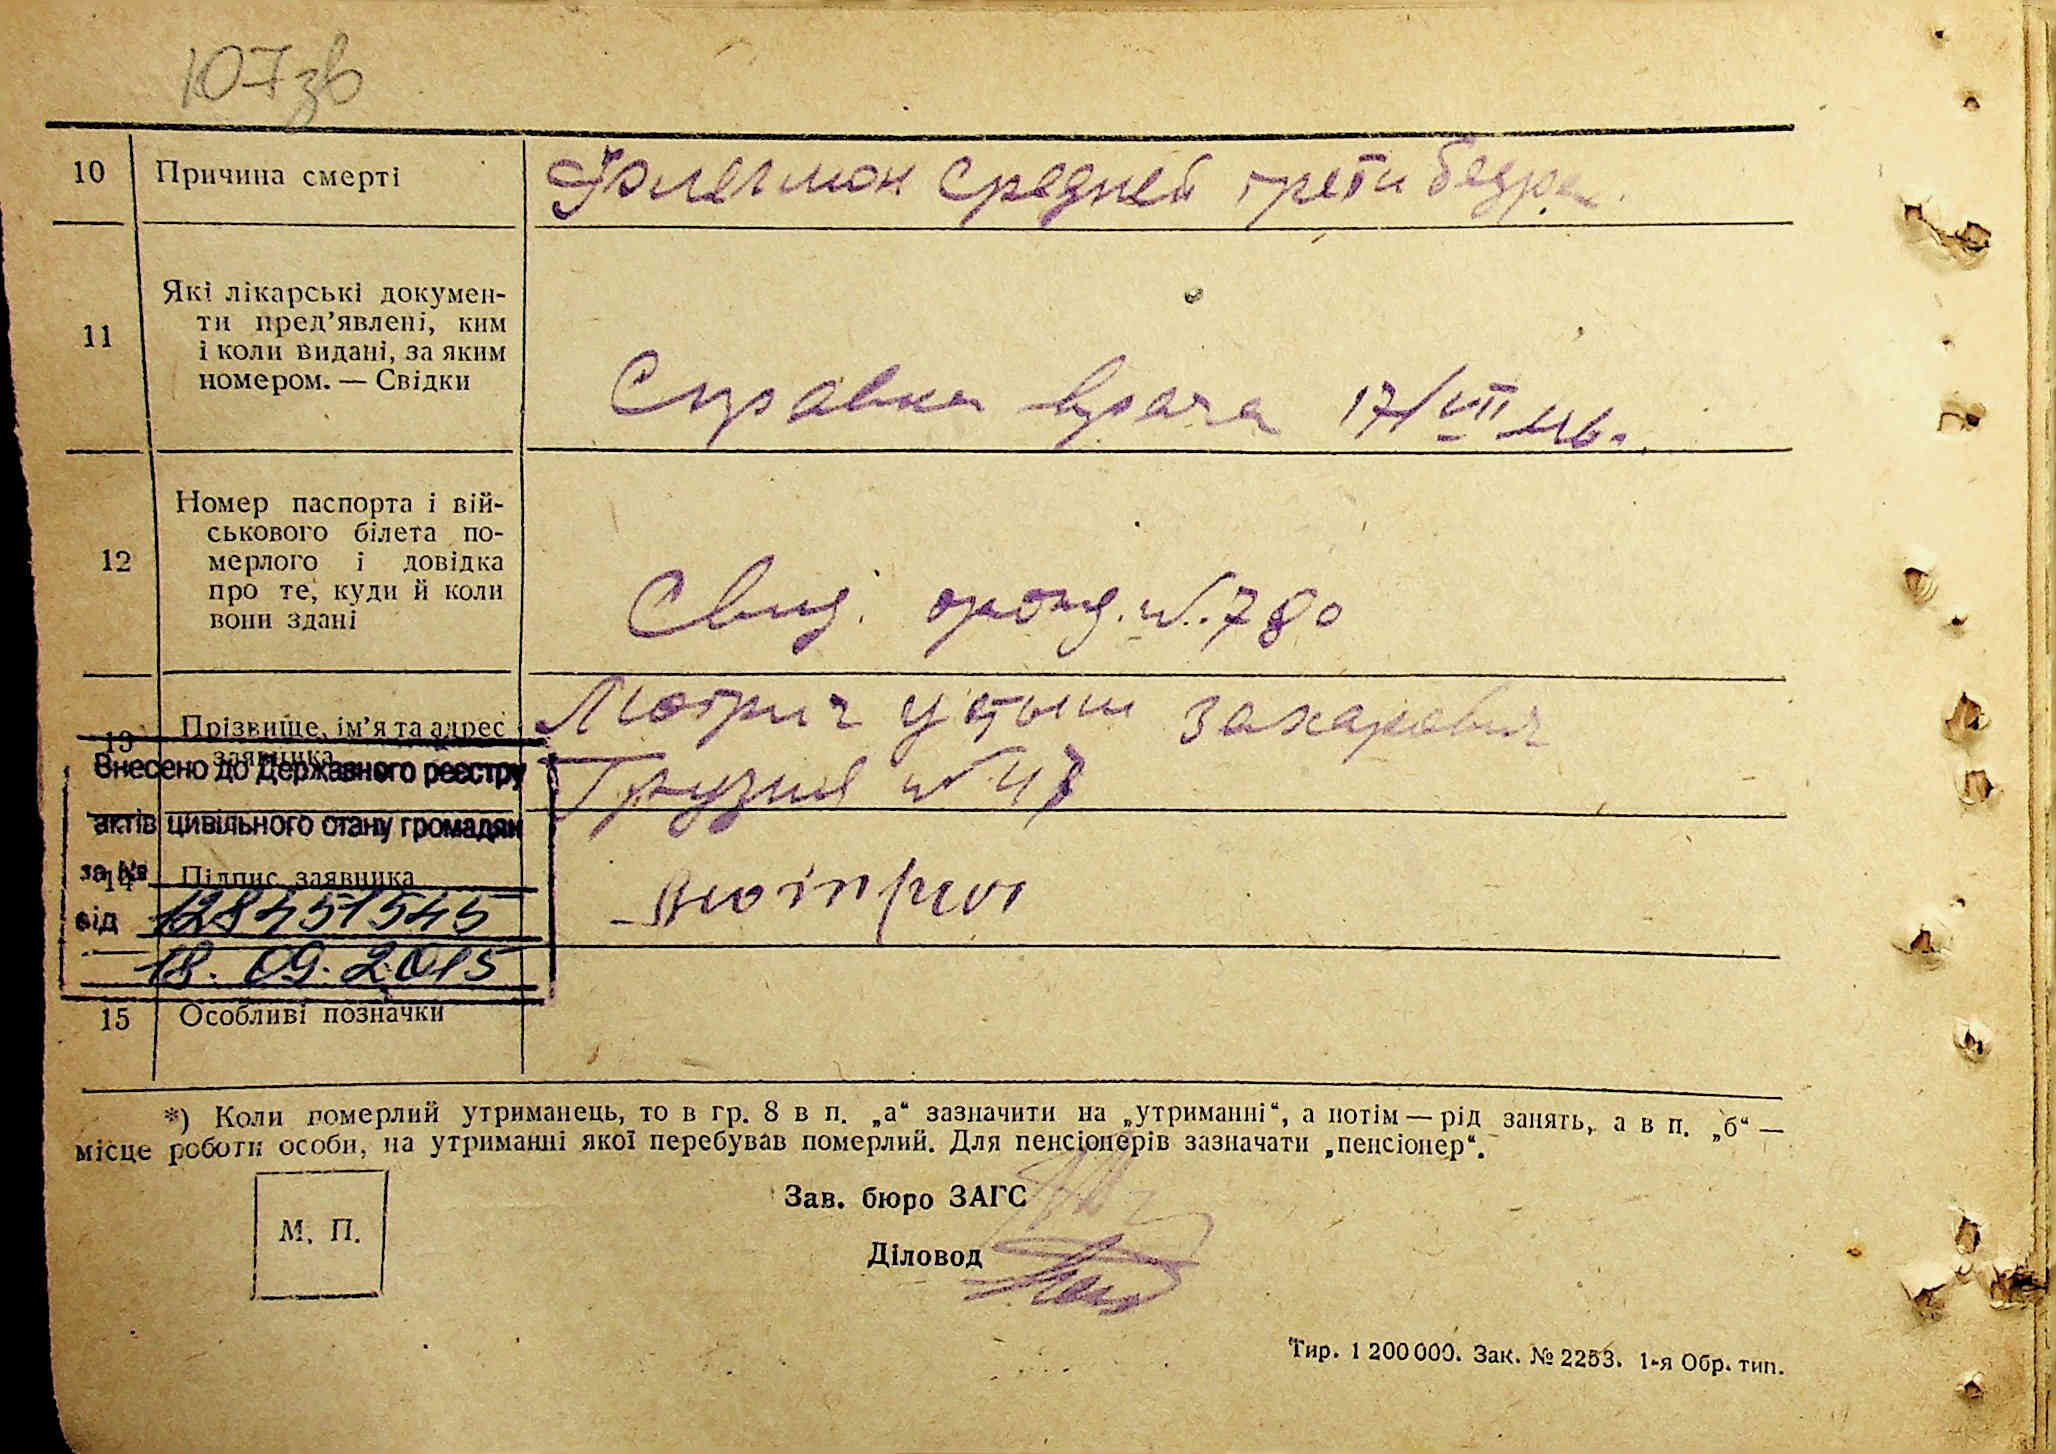 107зв
10 Причина смерті
средней трети бедра
11 Які лікарські докумен-
ти пред’явлені, ким
і коли видані, за яким
номером. — Свідки
Справка врача 17/VII
12 Номер паспорта і вій-
ськового білета по-
мерлого і довідка
про те, куди й коли
вони здані
Свид. №780
13 Прізвище, ім’я та адрес
заявника
Захарович
№ 47
Внесено до Державного реєстру
актів цивільного стану громадян
за №
14 Підпис заявника
від 128451545
18.09.2015
15 Особливі позначки
*) Коли померлий утриманець, то в гр. 8 в п. „а“ зазначити на „утриманні“, а потім — рід занять, а в п. „б“ —
місце роботи особи, на утриманні якої перебував померлий. Для пенсіонерів зазначати „пенсіонер“.
М. П.
Зав. бюро ЗАГС
Діловод
Тир. 1 200 000. Зак. № 2253. 1-я Обр. тип.